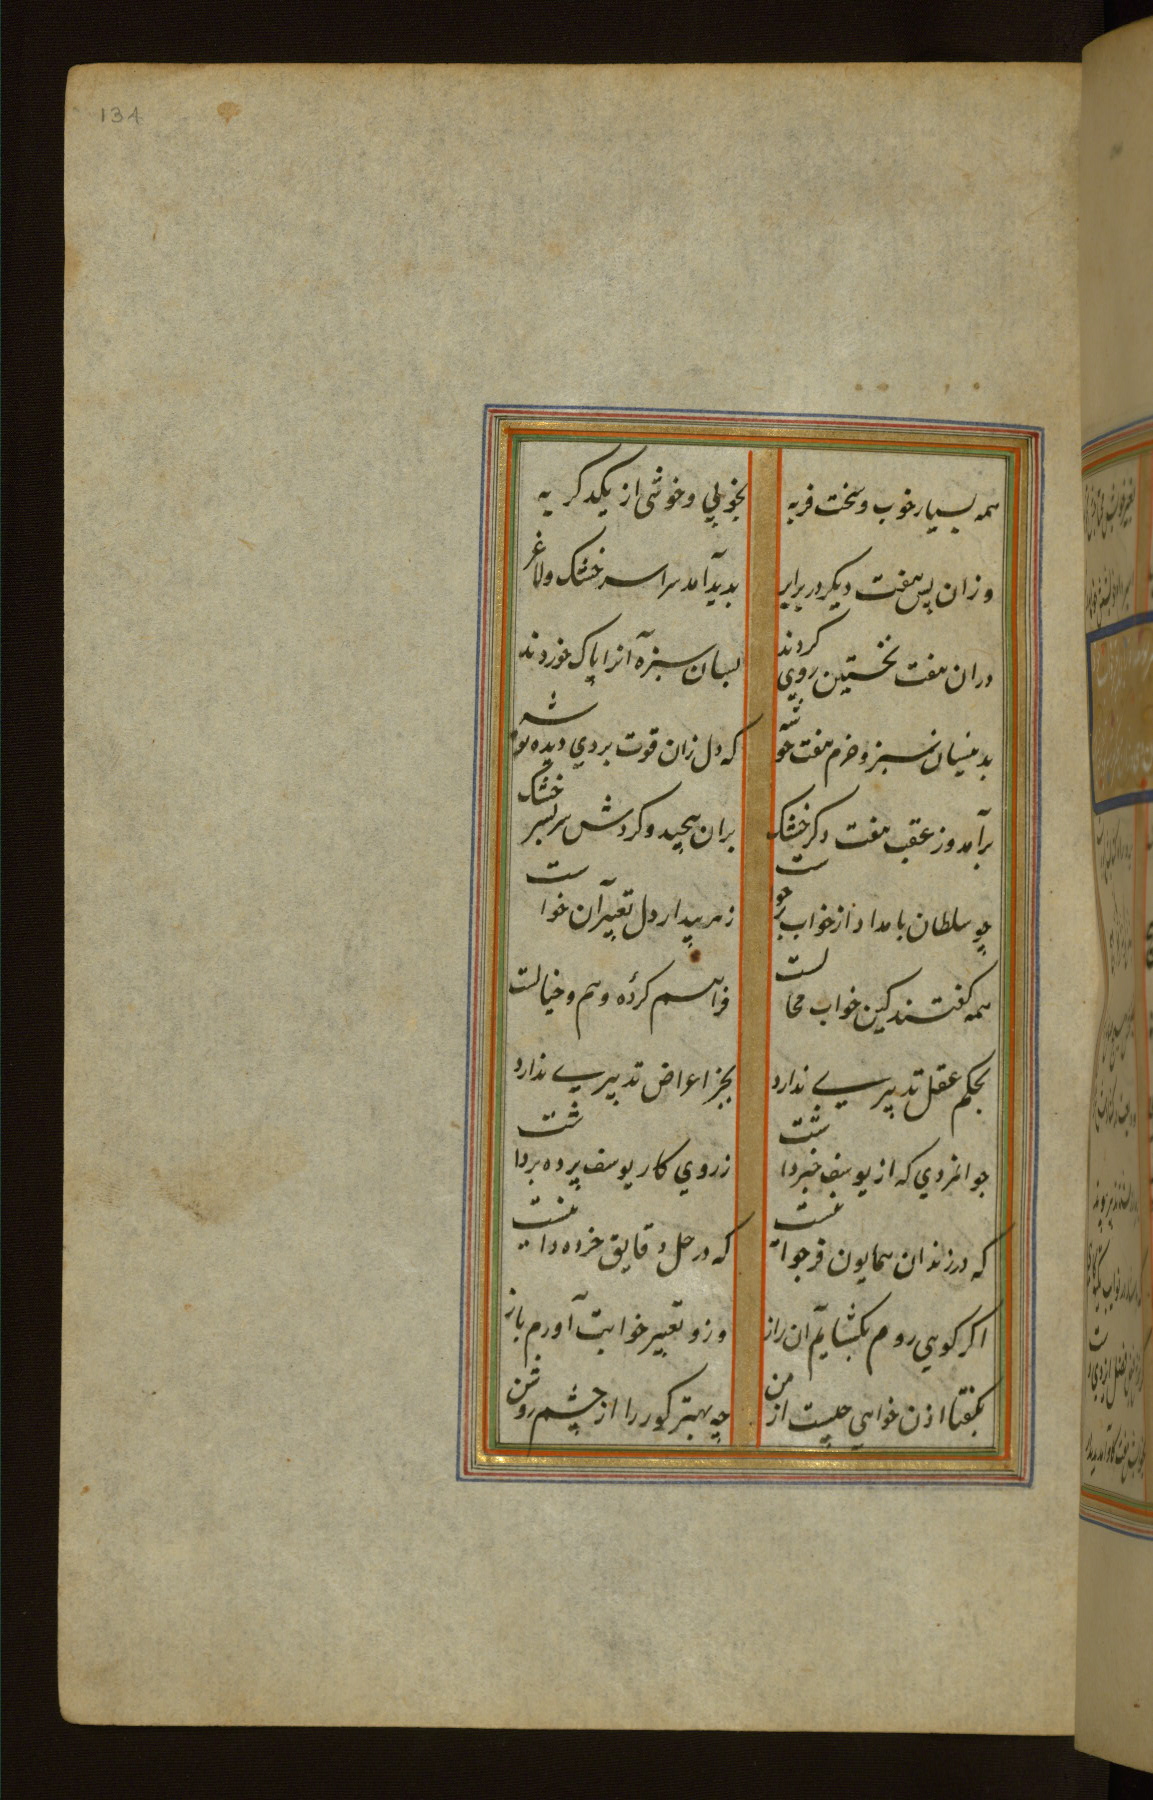 134
همه بسیار خوب و سخت فربه بخوبی و خوشی از یکدکر به
وزان پس هفت دیکر در برابر بدید آمد سراسر خشک ولاغر
دران هفت نخستین روی کردند بسان سبزه آنرا پاک خوردند
بدینسان سبز و خرم هفت خوشه که دل زان قوت بردی دیده توشه
برآمد وز عقب هفت دکر خشک بران پیچید و کردش سربسر خشک
چو سلطان بامداد از خواب برخوست زهر بیدار دل تعبیر آن خواست
همه کفتند کین خواب محالست فراهم کرده وهم و خیالست
بحکم عقل تدبیری ندارد بجز اعراض تدبیری ندارد
جوانمردی که از یوسف خبر داشت ز روی کار یوسف پرده برداشت
که در زندان همایون فر جوانیست که در حل دقایق خرده دانیست
اکر کویی روم بکشایم آن راز وزو تعبیر خوابت آورم باز
بکفتا اذن خواهی چیست از من چه بهتر کور را از چشم روشن